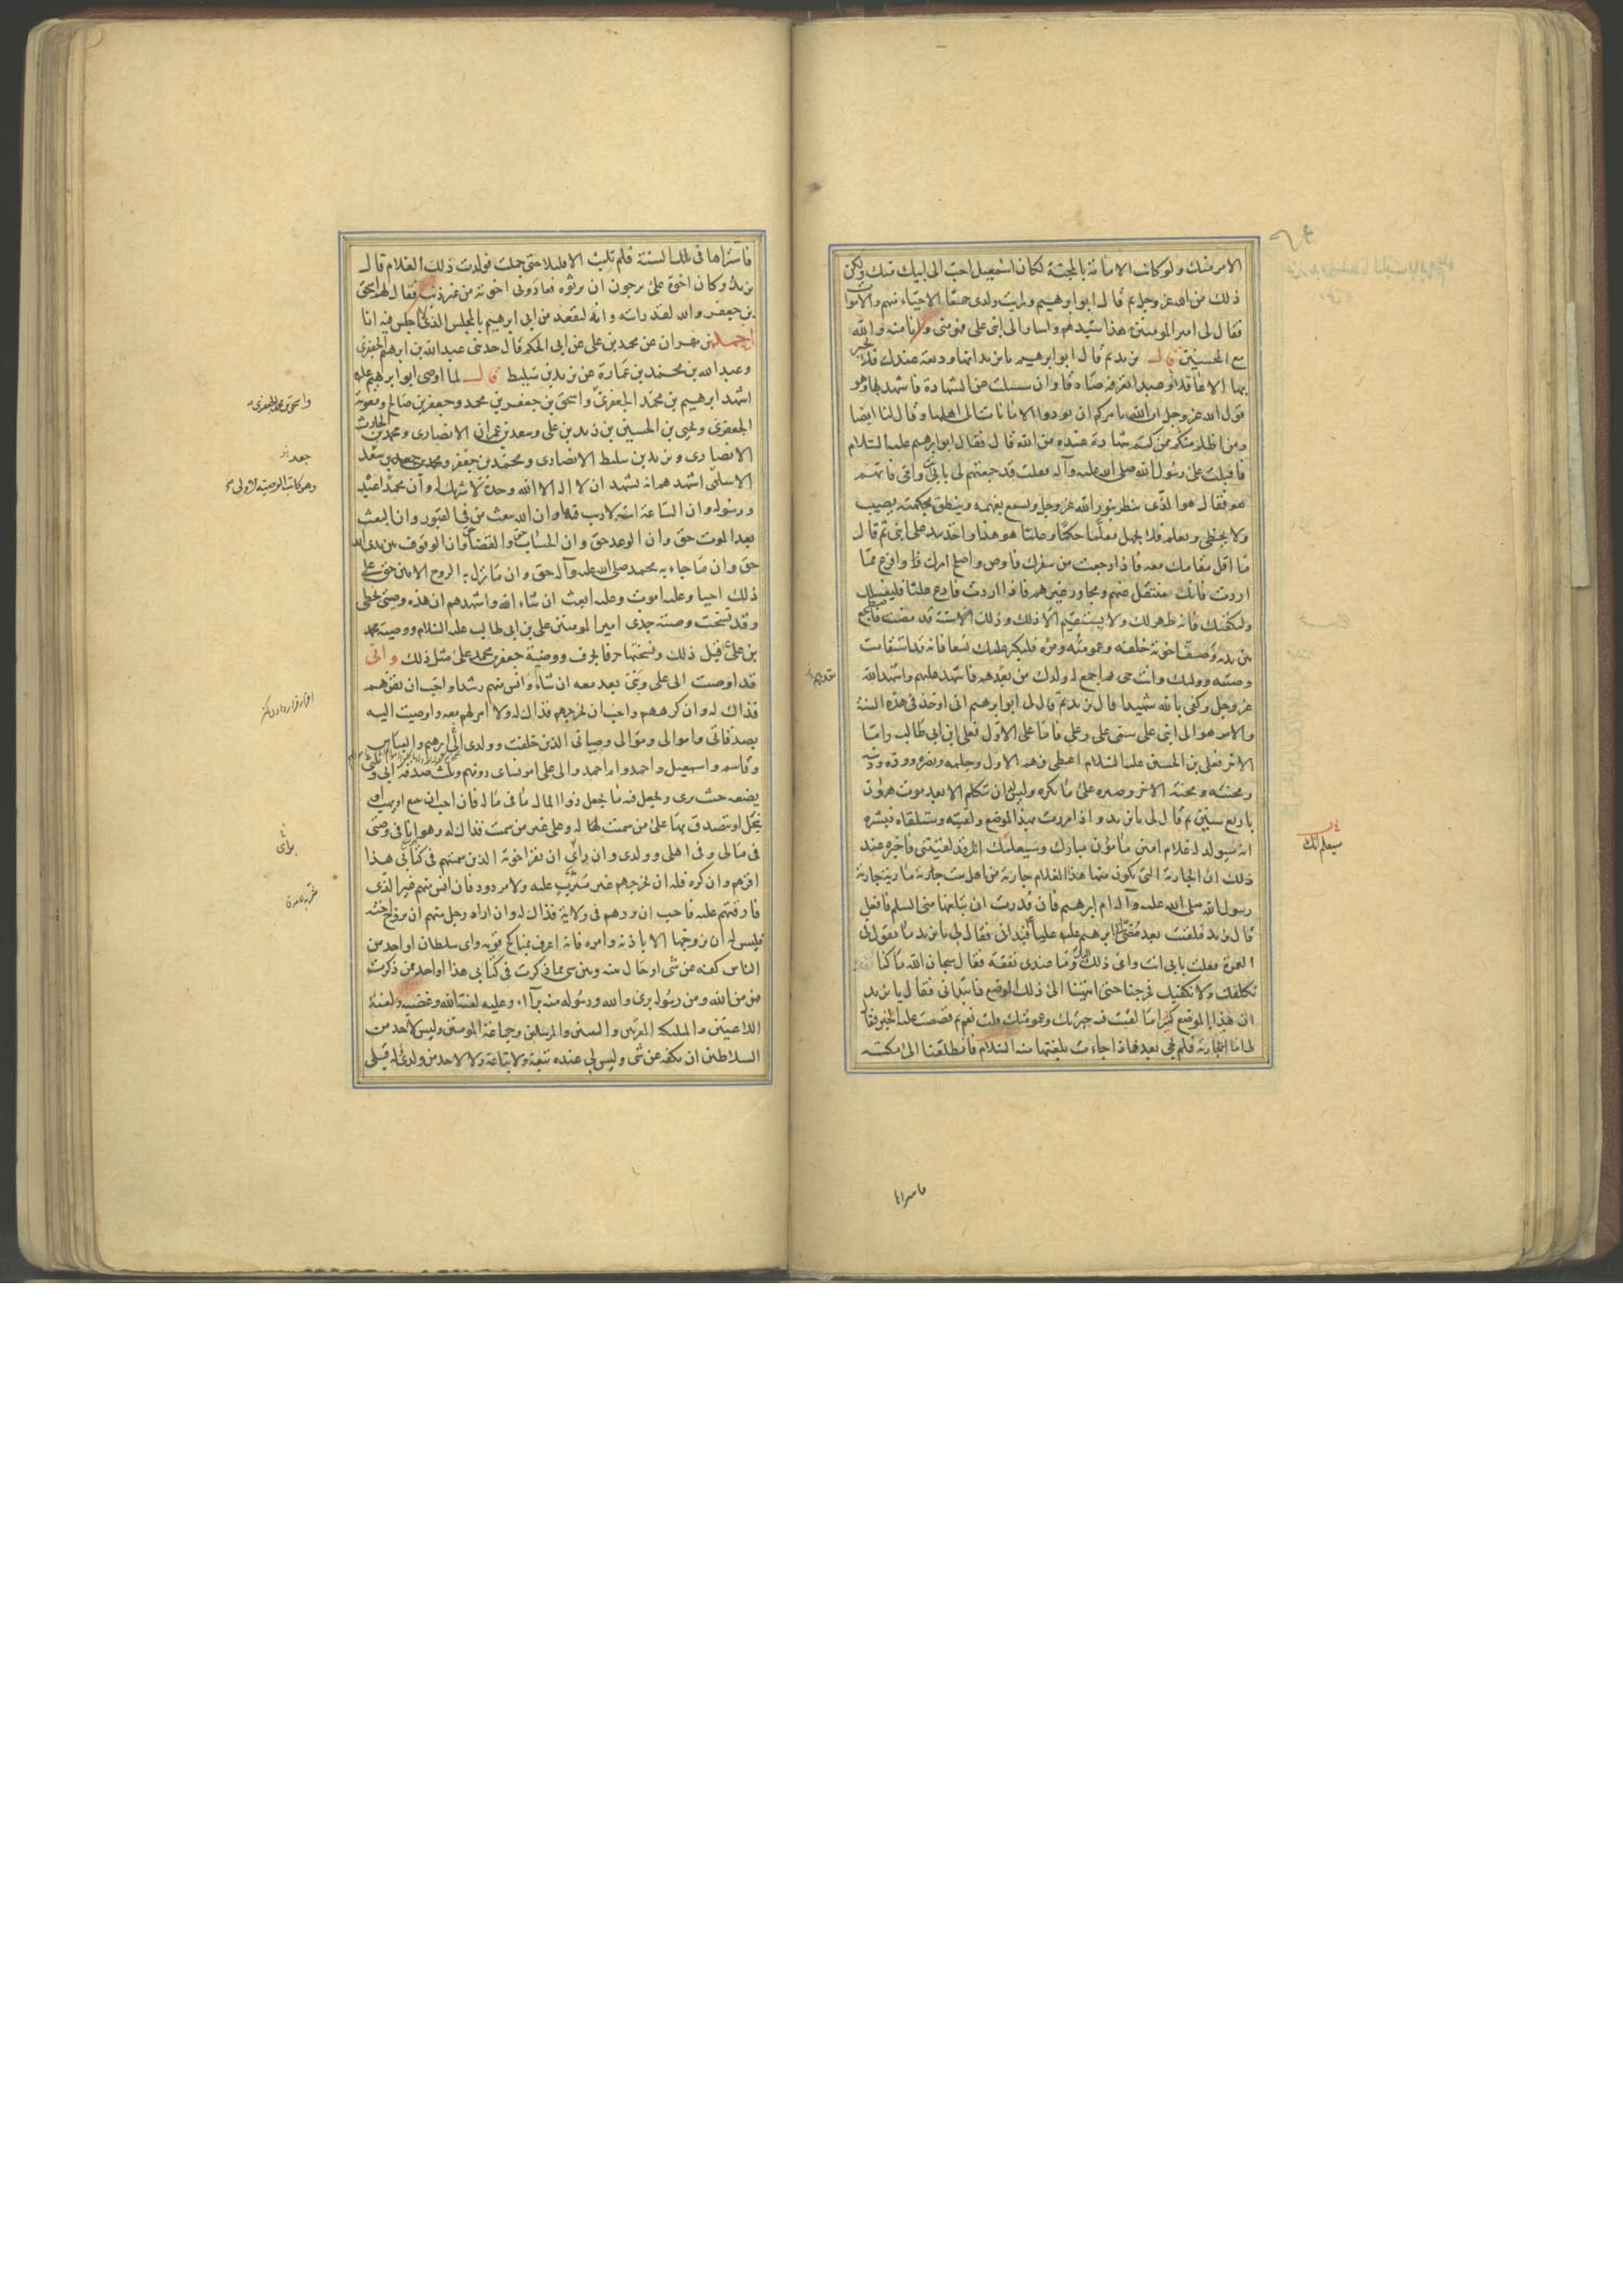 الامر منك ولو كانت الامامة بالمحبة لكان اسمعيل احب الى ابيك منك ولكن
ذلك من الله عز وجل ثم قال ابو ابرهيم ورايت ولدى جميعا الاحياء منهم والاموات
فقال لى امير المومنين هذا سيدهم واشار الى ابنى على فهو منى وانا منه والله
مع المحسنين قال يزيد ثم قال ابو ابرهيم يا يزيد انها وديعة عندك فلا تخبر
بها الا عاقلا او عبدا تعرفه صادقا وان سئلت عن الشهادة فاشهد بها وهو
قول الله عز وجل ان الله يامركم ان تودوا الامانات الى اهلها وقال لنا ايضا
ومن اظلم ممن كتم شهادة عنده من الله قال فقال ابو ابرهيم عليه السلام
فاقبلت على رسول الله صلى الله عليه وآله فقلت قد جمعتهم لى بابى وامى فايهم
هو فقال هو الذى ينظر بنور الله عز وجل ويسمع بفهمه وينطق بحكمته يصيب
ولا يخطى ويعلم فلا يجهل معلما حكما وعلما هو هذا واخذ بيد على ابنى ثم قال
ما اقل مقامك معه فاذا رجعت من سفرك فاوص واصلح امرك وافرغ مما
اردت فانك منتقل عنهم ومجاور غيرهم فاذا اردت فادع عليا فليغسلك
وليكفنك فانه طهر لك ولا يستقيم الا ذلك وذلك سنة قد مضت فاضطجع
بين يديه وصف اخوته خلفه وعمومته ومره فليكبر عليك تسعا فانه قد استقامت
وصيته ووليك وانت حى ثم اجمع له ولدك من بعدهم فاشهد عليهم واشهد الله
عز وجل وكفى بالله شهيدا قال يزيد ثم قال لى ابو ابرهيم انى اوخذ فى هذه السنة
والامر هو الى ابنى على سمى على وعلى فاما على الاول فعلى ابن ابى طالب واما
الاخر فعلى بن الحسين عليه السلام اعطى فهم الاول وحلمه ونصره ووده ودينه
ومحنته ومحنة الاخر وصبره على ما يكره وليس له ان يتكلم الا بعد موت هرون
باربع سنين ثم قال لى يا يزيد واذا مررت بهذا الموضع ولقيته وستلقاه فبشره
انه سيولد له غلام امين مامون مبارك وسيعلمك انك قد لقيتنى فاخبره عند
ذلك ان الجارية التى يكون منها هذا الغلام جارية من اهل بيت جارية مارية جارية
رسول الله صلى الله عليه وآله ام ابرهيم فان قدرت ان تبلغها منى السلم فافعل
قال يزيد فلقيت بعد مضى ابى ابرهيم عليه عليا فبدانى فقال لى يا يزيد ما تقول فى
العمرة فقلت بابى انت وامى ذلك اليك وما عندى نفقة فقال سبحان الله ما كنا
نكلفك ولا نكفيك فخرجنا حتى انتهينا الى ذلك الموضع فابتدانى فقال يا يزيد
ان هذا الموضع كثيرا ما لقيت فيه جيرتك وعمومتك قلت نعم ثم قصصت عليه الخبر فقال
لى اما الجارية فلم تجئ بعد فاذا جاءت بلغتها منه السلام فانطلقنا الى مكة
قديم
سيعلمك
فاشتراها
فاشتراها فى تلك السنة فلم تلبث الا قليلا حتى حملت فولدت ذلك الغلام قال
يزيد وكان اخوة على يرجون ان يرثوه فعادونى اخوته من غير ذنب فقال لهم اسحق
بن جعفر والله لقد رايته وانه ليقعد من ابى ابرهيم بالمجلس الذى لا اجلس فيه انا
احمد بن مهران عن محمد بن على عن ابى الحكم قال حدثنى عبد الله بن ابرهيم الجعفرى
وعبد الله بن محمد بن عمارة عن يزيد بن سليط قال لما اوصى ابو ابرهيم عليه
اشهد ابرهيم بن محمد الجعفرى واسحق بن جعفر بن محمد وجعفر بن صالح ومعوية
الجعفرى ويحيى بن الحسين بن زيد بن على وسعد بن عمران الانصارى ومحمد بن الحارث
الانصارى ويزيد بن سليط الانصارى ومحمد بن جعفر بن سعد
الاسلمى اشهدهم انه يشهد ان لا اله الا الله وحده لا شريك له وان محمدا عبده
ورسوله وان الساعة اتية لا ريب فيها وان الله يبعث من فى القبور وان البعث
بعد الموت حق وان الوعد حق وان الحساب حق والقضاء حق وان الوقوف بين يدى الله
حق وان ما جاء به محمد صلى الله عليه وآله حق وان ما نزل به الروح الامين حق على
ذلك احيا وعليه اموت وعليه ابعث ان شاء الله واشهدهم ان هذه وصيتى بخطى
وقد نسخت وصية جدى امير المومنين على بن ابى طالب عليه السلام ووصية محمد
بن على قبل ذلك ونسختها حرفا بحرف ووصية جعفر بن محمد على مثل ذلك وانى
قد اوصيت الى على وبنى بعد معه ان شاء وانس منهم رشدا واحب ان يقرهم
فذاك له وان كرههم واحب ان يخرجهم فذاك له ولا امر لهم معه واوصيت اليه
بصدقاتى واموالى وموالى وصبيانى الذين خلفت وولدى الى ابرهيم والعباس
وقاسم واسمعيل واحمد وام احمد والى على امر نساى دونهم وثلث صدقة ابى وثلثى
يضعه حيث يرى ويجعل فيه ما يجعل ذو المال فى ماله فان احب ان يبيع او يهب او
ينحل او يتصدق بها على من سميت له وعلى غير من سميت فذاك له وهو انا فى وصيتى
فى مالى وفى اهلى وولدى وان راى ان يقر اخوته الذين سميتهم فى كتابى هذا
اقرهم وان كره فله ان يخرجهم غير مثرب عليه ولا مردود فان انس منهم غير الذى
فارقتهم عليه فاحب ان يردهم فى ولاية فذاك له وان اراد رجل منهم ان يزوج اخته
فليس له ان يزوجها الا باذنه وامره فانه اعرف بمناكح قومه واى سلطان او احد من
الناس كفه عن شى او حال بينه وبين شى مما ذكرت فى كتابى هذا او احد ممن ذكرت
فهو من الله ومن رسوله برى والله ورسوله منه براء وعليه لعنة الله وغضبه ولعنة
اللاعنين والملئكة المقربين والنبيين والمرسلين وجماعة المومنين وليس لاحد من
السلاطين ان يكفه عن شى وليس لى عنده تبعة ولا تباعة ولا لاحد من ولدى له قبلى
واسحق بن محمد الجعفرى
وهو كاتب الوصية الاولى